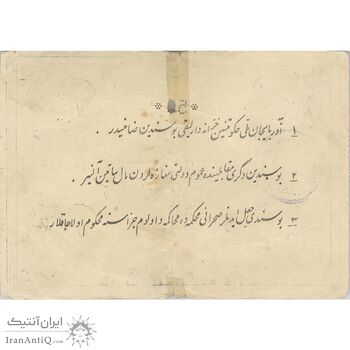 ۱ آذربایجان ملی حکومتینین خزانه دارلیقی بو سندین ضامنیدر .
۲ بو سندین دگری مقابلینده عموم دولتی مغازه لردن مال ساتین آلنیر .
۳ بو سندی جعل ایدنلر صحرائی محکمه ده محاکمه و اولوم جزاسنه محکوم اولاجاقلار
ایران آنتیک
IranAntiQ.com